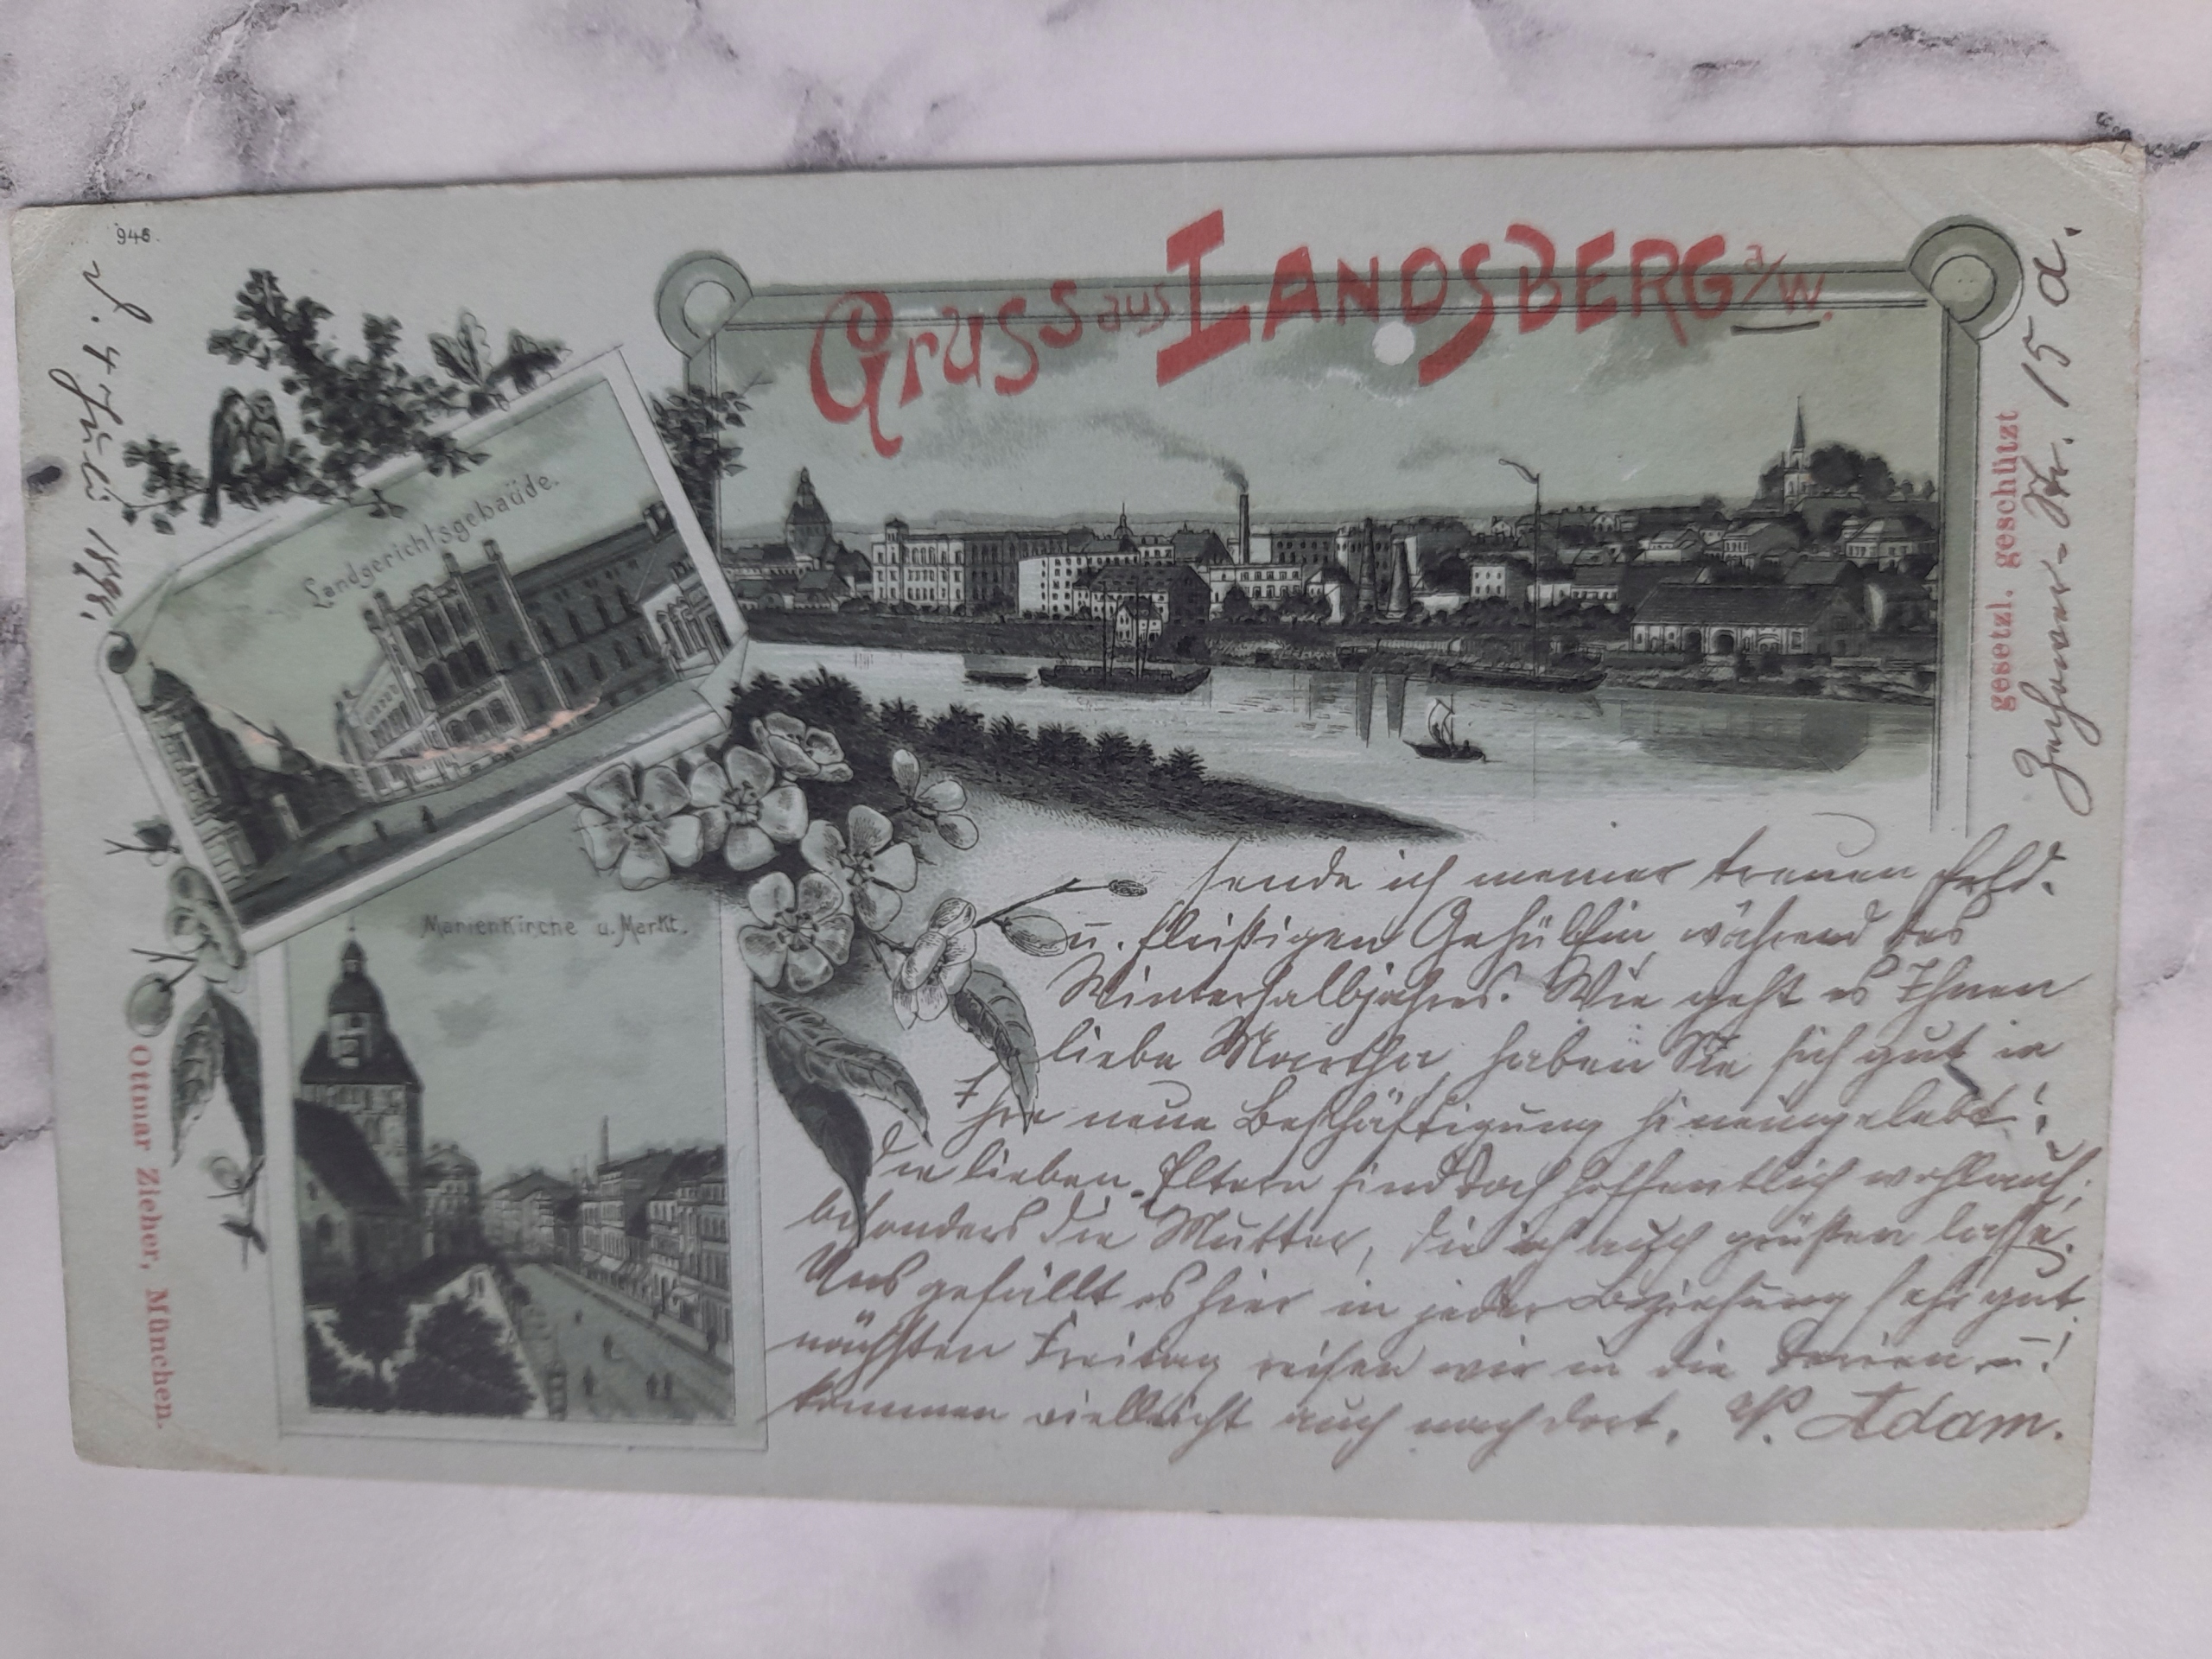 946.
d. 4 Juli 1898.
Gruss aus LANDSBERG a/W.
Landgerichtsgebaüde.
Marienkirche u. Markt.
gesetzl. geschützt
Zechower-Str. 15 a.
Ottmar Zieher, München.
sende ich meiner treuen
u. fleißigen Gehülfin während des
Winterhalbjahres. Wie geht es Ihnen
liebe Martha, haben Sie sich gut in
Ihre neue Beschäftigung hineingelebt?
Die lieben Eltern sind doch hoffentlich wohlauf;
besonders die Mutter, die ich auch grüßen lasse.
Uns gefällt es hier in jeder Beziehung sehr gut.
nächsten Freitag reisen wir in die Ferien u.
kommen vielleicht auch nach dort. P. Adam.